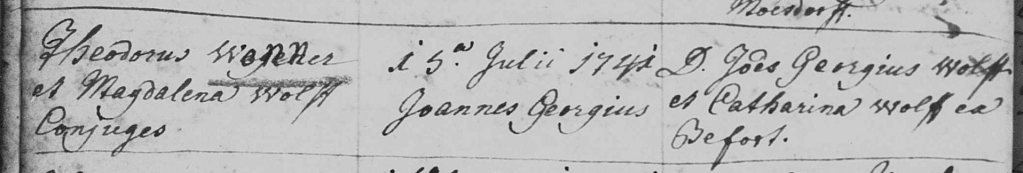 Moesdorff.
Theodorus Wagener
et Magdalena Wolff
Conjuges
15.a Julii 1741
Joannes Georgius
D. Joês Georgius Wolff
et Catharina Wolff ea
Befort.